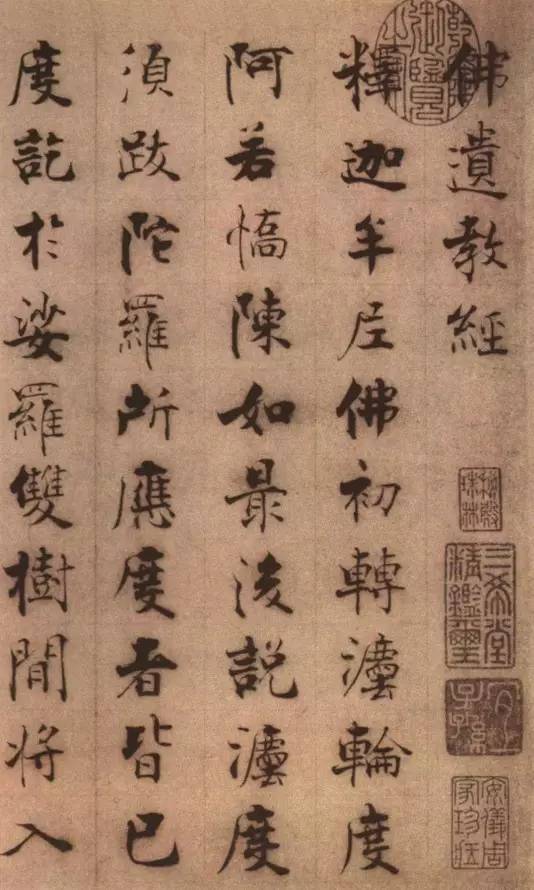 佛遺教經
釋迦牟尼佛初轉灋輪度
阿若憍陳如最後説灋度
須跋陀羅所應度者皆已
度訖於娑羅雙樹間将入
三希堂精鑑璽
安儀周家珍藏